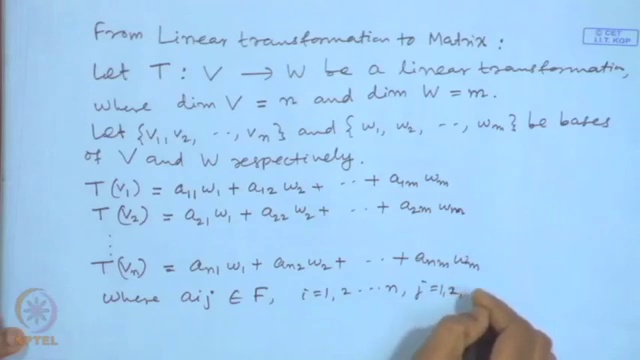 © CET
I.I.T. KGP
From Linear transformation to Matrix :
Let T : V → W be a linear transformation,
where dim V = n and dim W = m.
Let {v₁, v₂, ··, vₙ} and {w₁, w₂, ··, wₘ} be bases
of V and W respectively.
T(v₁) = a₁₁ w₁ + a₁₂ w₂ + ··· + a₁ₘ wₘ
T(v₂) = a₂₁ w₁ + a₂₂ w₂ + ··· + a₂ₘ wₘ
⋮
T(vₙ) = aₙ₁ w₁ + aₙ₂ w₂ + ··· + aₙₘ wₘ
where aij ∈ F, i=1, 2 ··· n, j=1, 2,
NPTEL